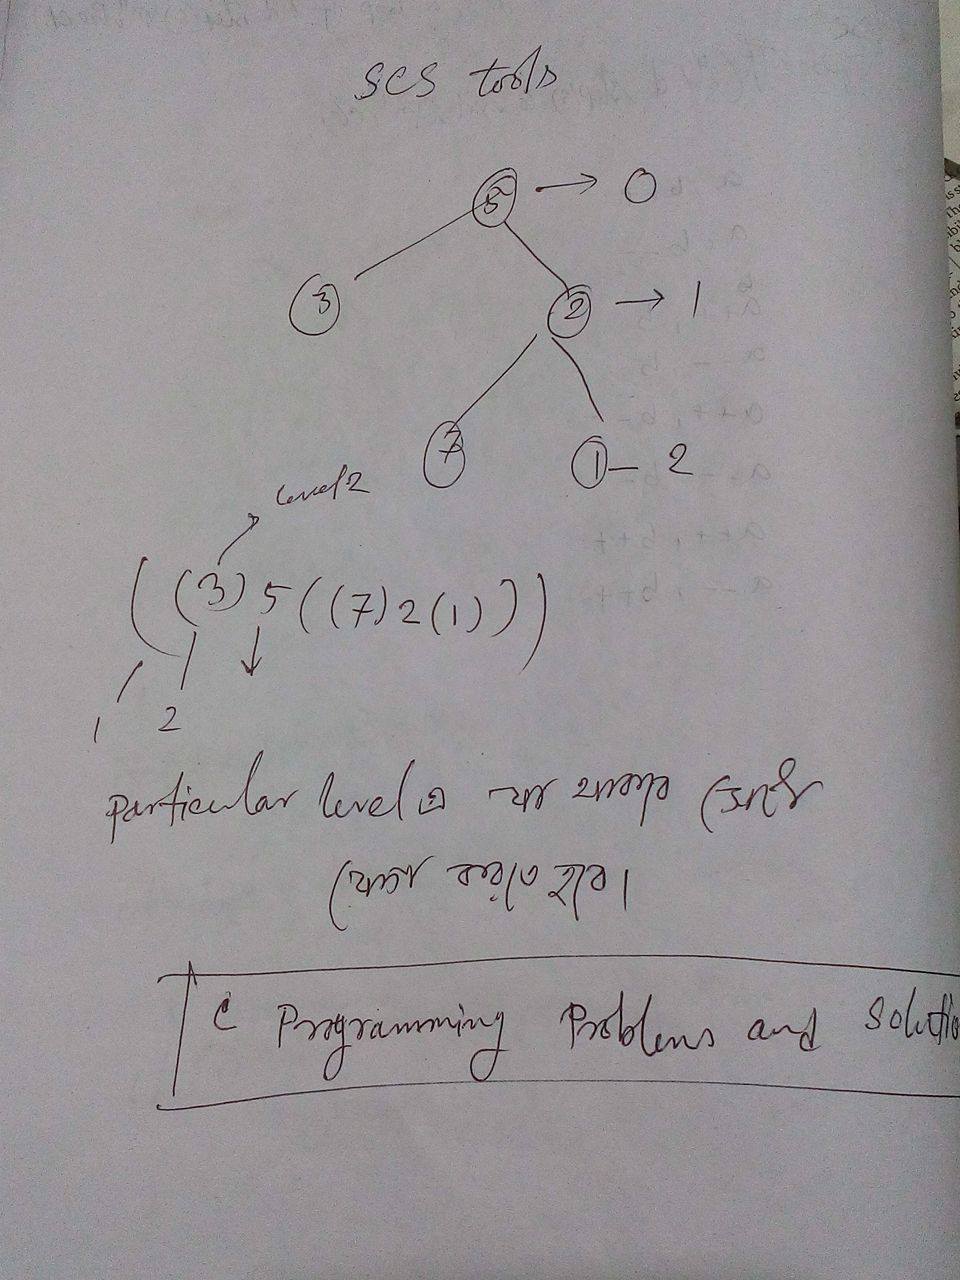 SCS tools
5 → 0
3 2 → 1
7 1 — 2
level 2
((3) 5 ((7) 2 (1)))
1 2
particular level এ যা থাকবে সেটা
যোগ করতে হবে।
C Programming Problems and Solutio